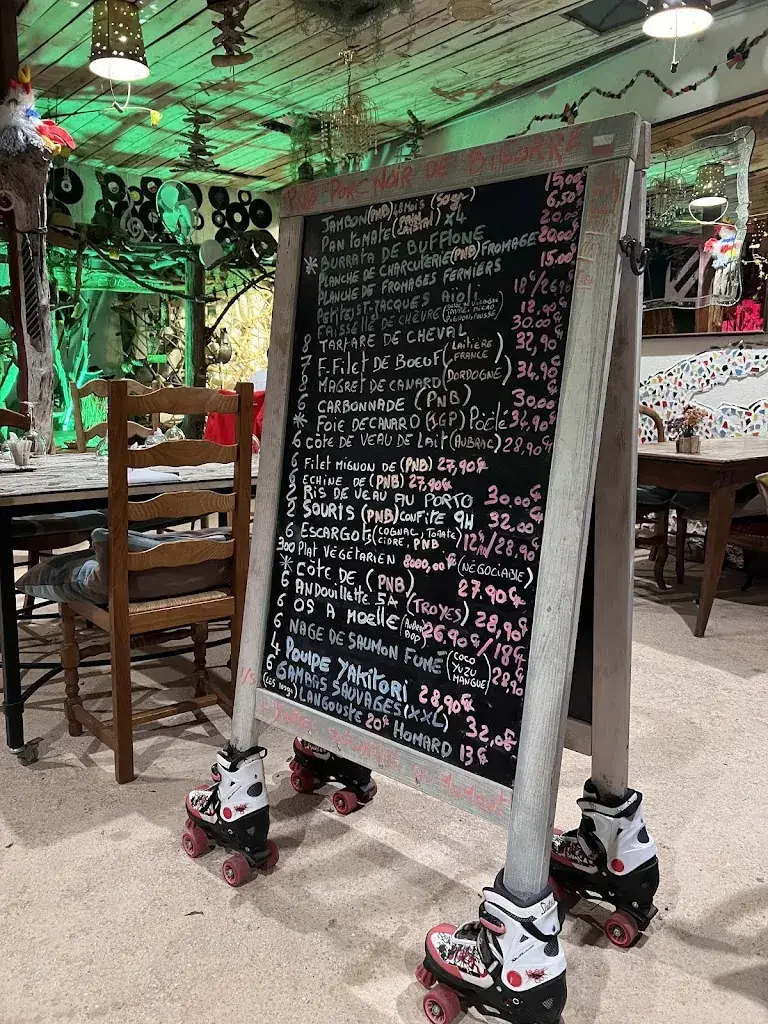 PNB PORC NOIR DE BIGORRE
JAMBON (PNB) 48 MOIS (50gr) 15,00€
PAN TOMATE (PAIN CRISTAL) x4 6,50€
BURRATA DE BUFFLONE 20,00€
* PLANCHE DE CHARCUTERIE (PNB) FROMAGE 20,00€
PLANCHE DE FROMAGES FERMIERS 15,00€
PETITES ST-JACQUES AÏOLI 18€/26,90€
FAISSELLE DE CHÈVRE 12,00€
8 TARTARE DE CHEVAL 30,00€
7 F. FILET DE BOEUF (LAITIÈRE FRANCE) 32,90€
8 MAGRET DE CANARD (DORDOGNE) 34,90€
6 CARBONNADE (PNB) 30,00€
* FOIE DE CANARD (IGP) POÊLÉ 34,90€
6 CÔTE DE VEAU DE LAIT (AUBRAC) 28,90€
6 FILET MIGNON DE (PNB) 27,90€
6 ECHINE DE (PNB) 27,90€
2 RIS DE VEAU AU PORTO 30,00€
2 SOURIS (PNB) CONFITE 9H 32,00€
6 ESCARGOTS (COGNAC, TOMATE, CIDRE, PNB 12€/28,90€
300 PLAT VÉGÉTARIEN 8000,00€ (NÉGOCIABLE)
* CÔTE DE (PNB) 27,90€
6 ANDOUILLETTE 5A (TROYES) 28,90€
6 OS A MOELLE 26,90€/18€
6 NAGE DE SAUMON FUMÉ (COCO YUZU MANGUE) 28,90€
4 POULPE YAKITORI 28,90€
6 GAMBAS SAUVAGES (XXL) 32,00€
(LES 100gr) LANGOUSTE 20€ HOMARD 13€